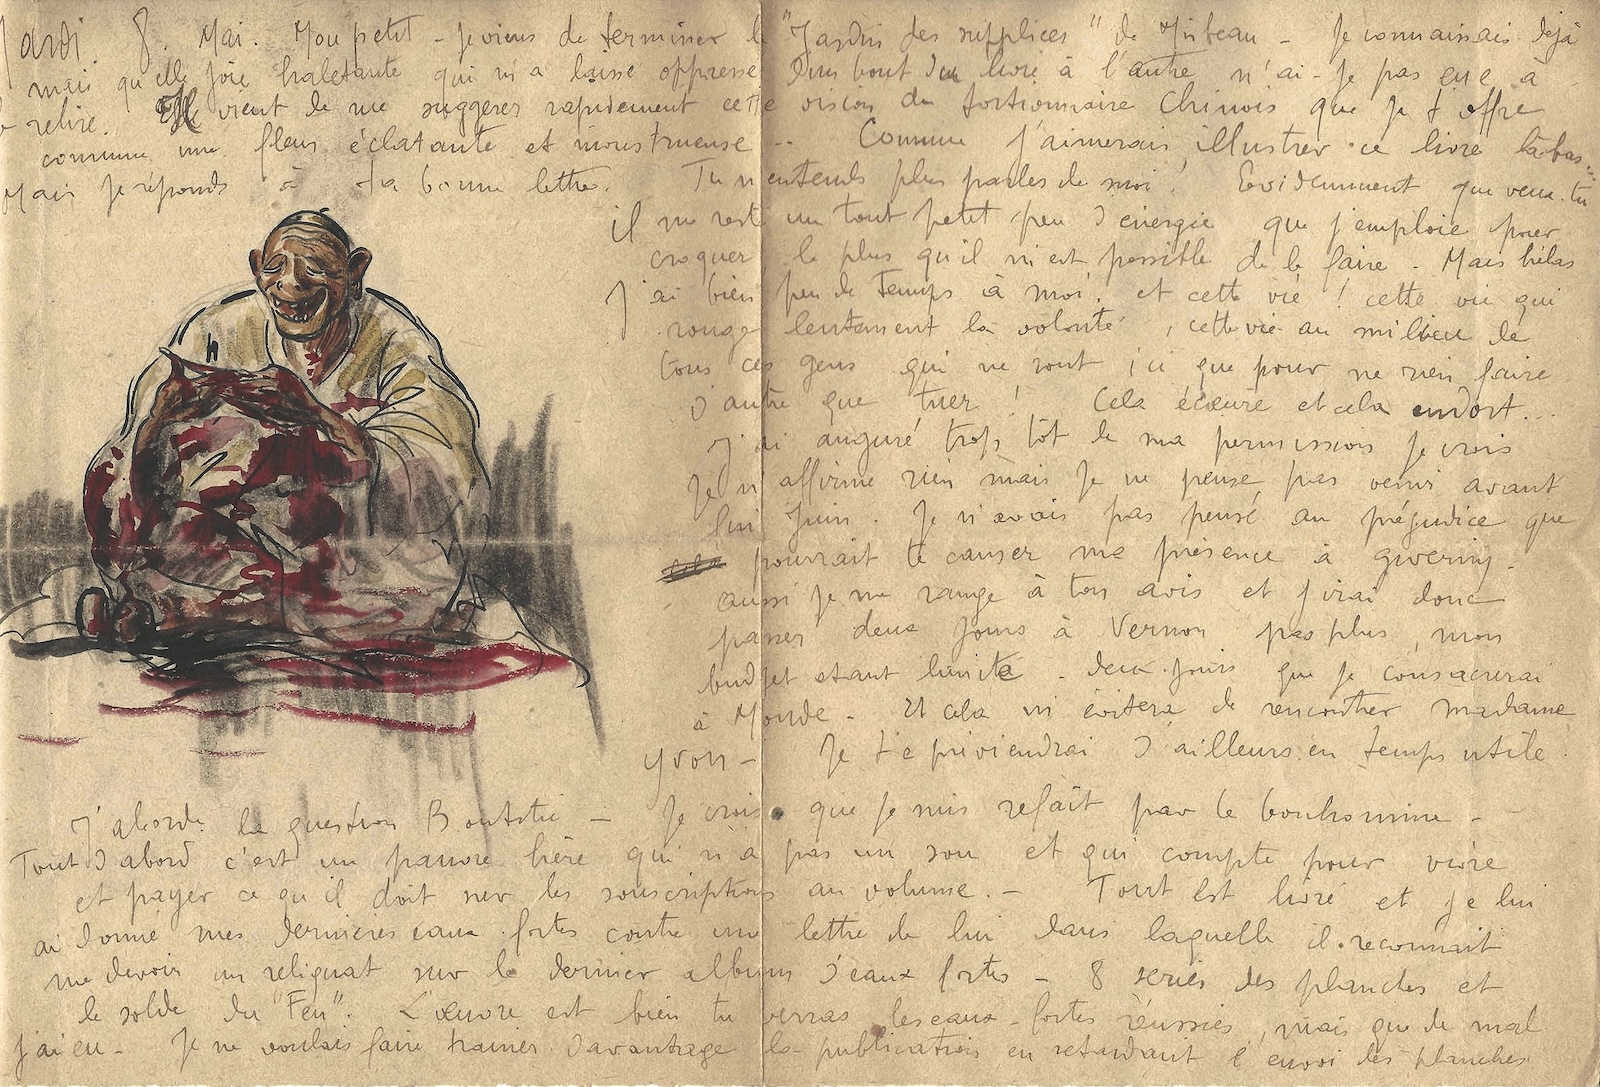 Mardi 8. Mai. Mon petit - je viens de terminer le "Jardin des supplices" de Mirbeau - Je connaissais déjà
mais qu'elle joie haletante qui m'a laissé oppressé d'un bout du livre à l'autre n'ai-je pas eue à
le relire. Elle vient de me suggérer rapidement cette vision du tortionnaire chinois que je t'offre
comme une fleur éclatante et monstrueuse .. Comme j'aimerais illustrer ce livre là-bas...
Mais je réponds à ta bonne lettre. Tu n'entends plus parler de moi! Evidemment que veux-tu
il me reste un tout petit peu d'énergie que j'emploie pour
croquer le plus qu'il m'est possible de le faire. Mais hélas
J'ai bien peu de temps à moi. et cette vie! cette vie qui
ronge lentement la volonté, cette vie au milieu de
tous ces gens qui ne sont ici que pour ne rien faire
d'autre que tuer! Cela écœure et cela endort...
J'ai auguré trop tôt de ma permission je crois
Je n'affirme rien mais je ne pense pas venir avant
fin Juin. Je n'avais pas pensé au préjudice que
pourrait te causer ma présence à giverny.
aussi je me range à ton avis et j'irai donc
passer deux jours à Vernon pas plus, mon
budget étant limité. deux jours que je consacrerai
à Monde - Et cela m'évitera de rencontrer madame
Yvon - Je te préviendrai d'ailleurs en temps utile.
J'aborde la question - Je crois que je suis refait par le bonhomme -
Tout d'abord c'est un pauvre hère qui n'a pas un sou et qui compte pour vivre
et payer ce qu'il doit sur les souscriptions au volume. - Tout est livré et je lui
ai donné mes dernières eaux fortes contre une lettre de lui dans laquelle il reconnait
me devoir un reliquat sur le dernier album d'eaux fortes - 8 séries des planches et
le solde du "Feu". L'œuvre est bien tu verras les eaux-fortes réussies, mais que de mal
j'ai eu - Je ne voulais faire trainer davantage la publication en retardant l'envoi des planches